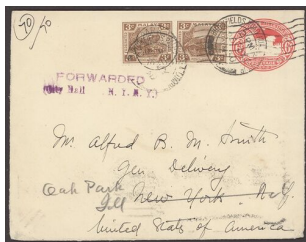 FORWARDED
(City Hall N.Y. N.Y.)
Mr. Alfred B. M. Smith
Gen Delivery
Oak Park
Ill
New York. N.Y.
United States of America